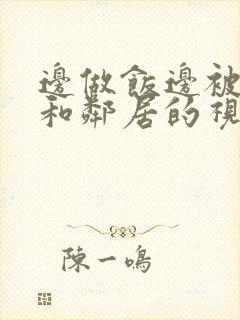 邊做飯邊被
和鄰居的視
陳一鳴